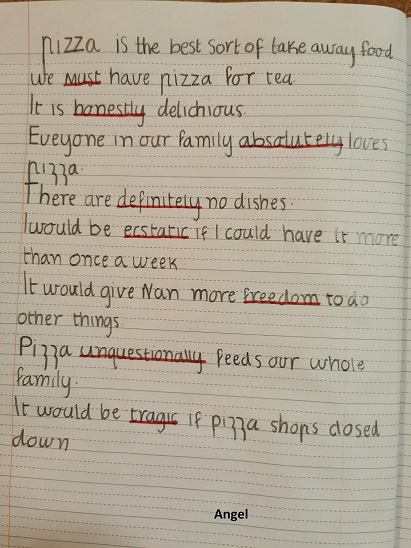 pizza is the best sort of take away food
we must have pizza for tea.
It is honestly delichious.
Eveyone in our family absolutely loves
pizza.
There are definitely no dishes.
I would be ecstatic if I could have it more
than once a week
It would give Nan more freedom to do
other things
Pizza unquestionally feeds our whole
family.
It would be tragic if pizza shops closed
down
Angel